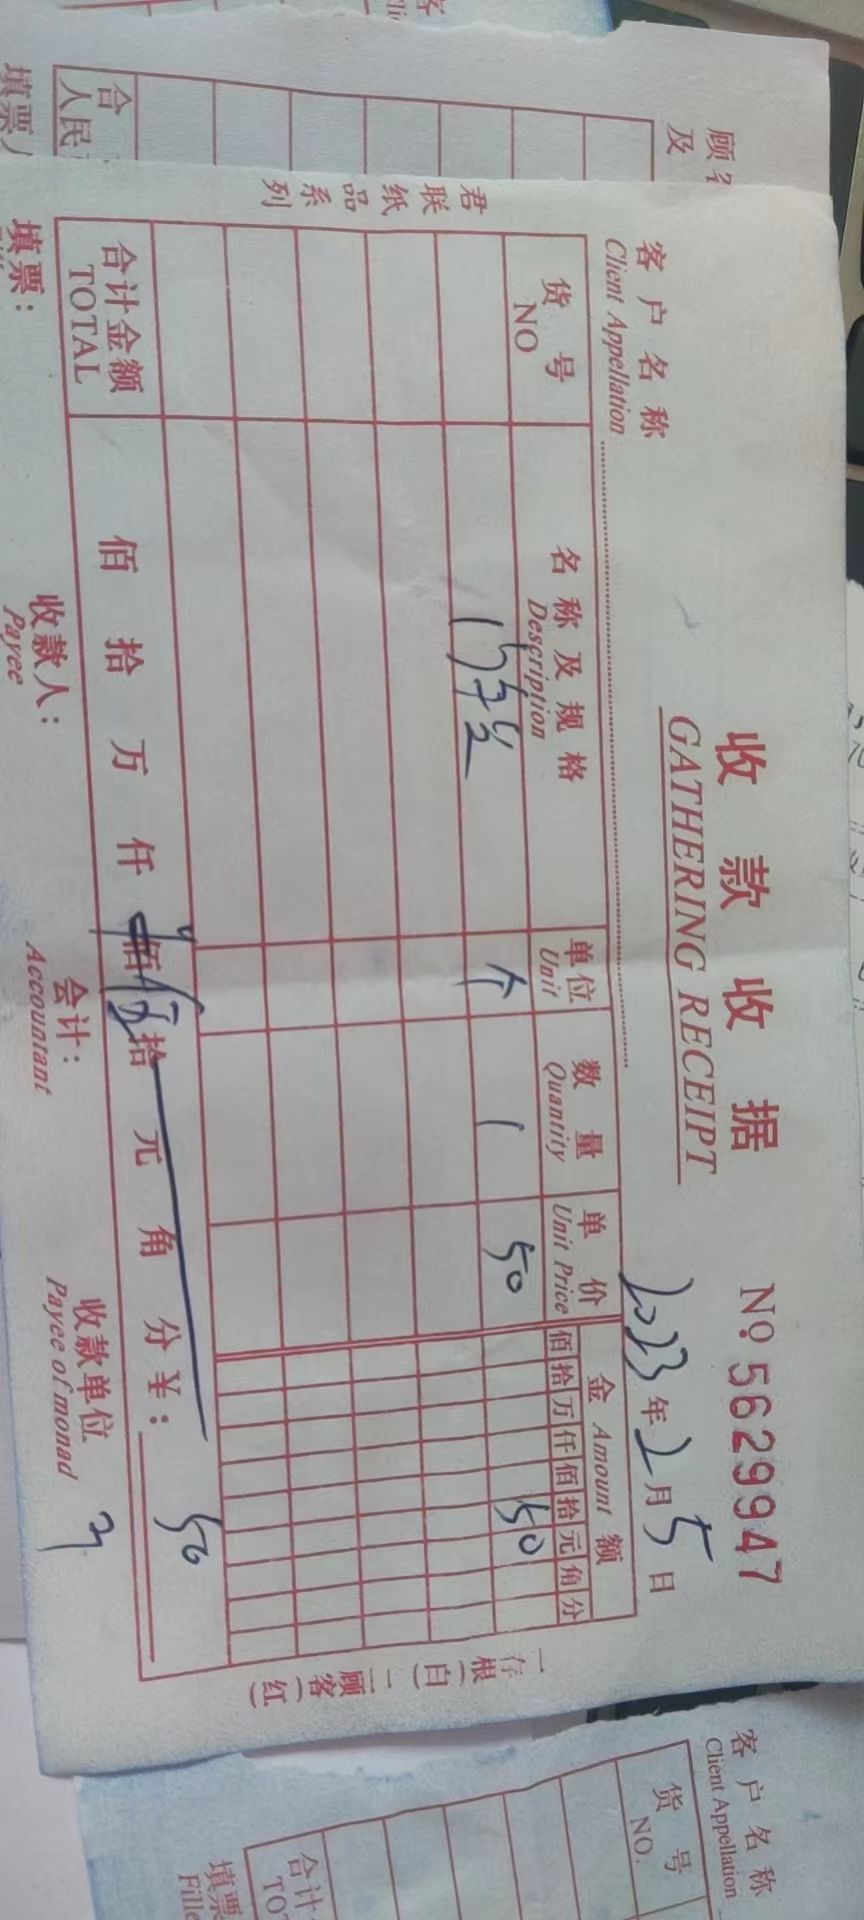 收款收据
GATHERING RECEIPT
No. 5629947
2023年2月5日
客户名称
Client Appellation
货号
NO
名称及规格
Description
单位
Unit
数量
Quantity
单价
Unit Price
金额
Amount
佰拾万仟佰拾元角分
个 1 50 50
合计金额
TOTAL
佰拾万仟佰拾元角分¥: 50
填票:
收款人:
Payee
会计:
Accountant
收款单位
Payee of monad
君联纸品系列
一存根(白) 二顾客(红)
合
人民
填票人
顾名
及
客户名称
Client Appellation
货号
NO.
合计
TOT
填票
Fille